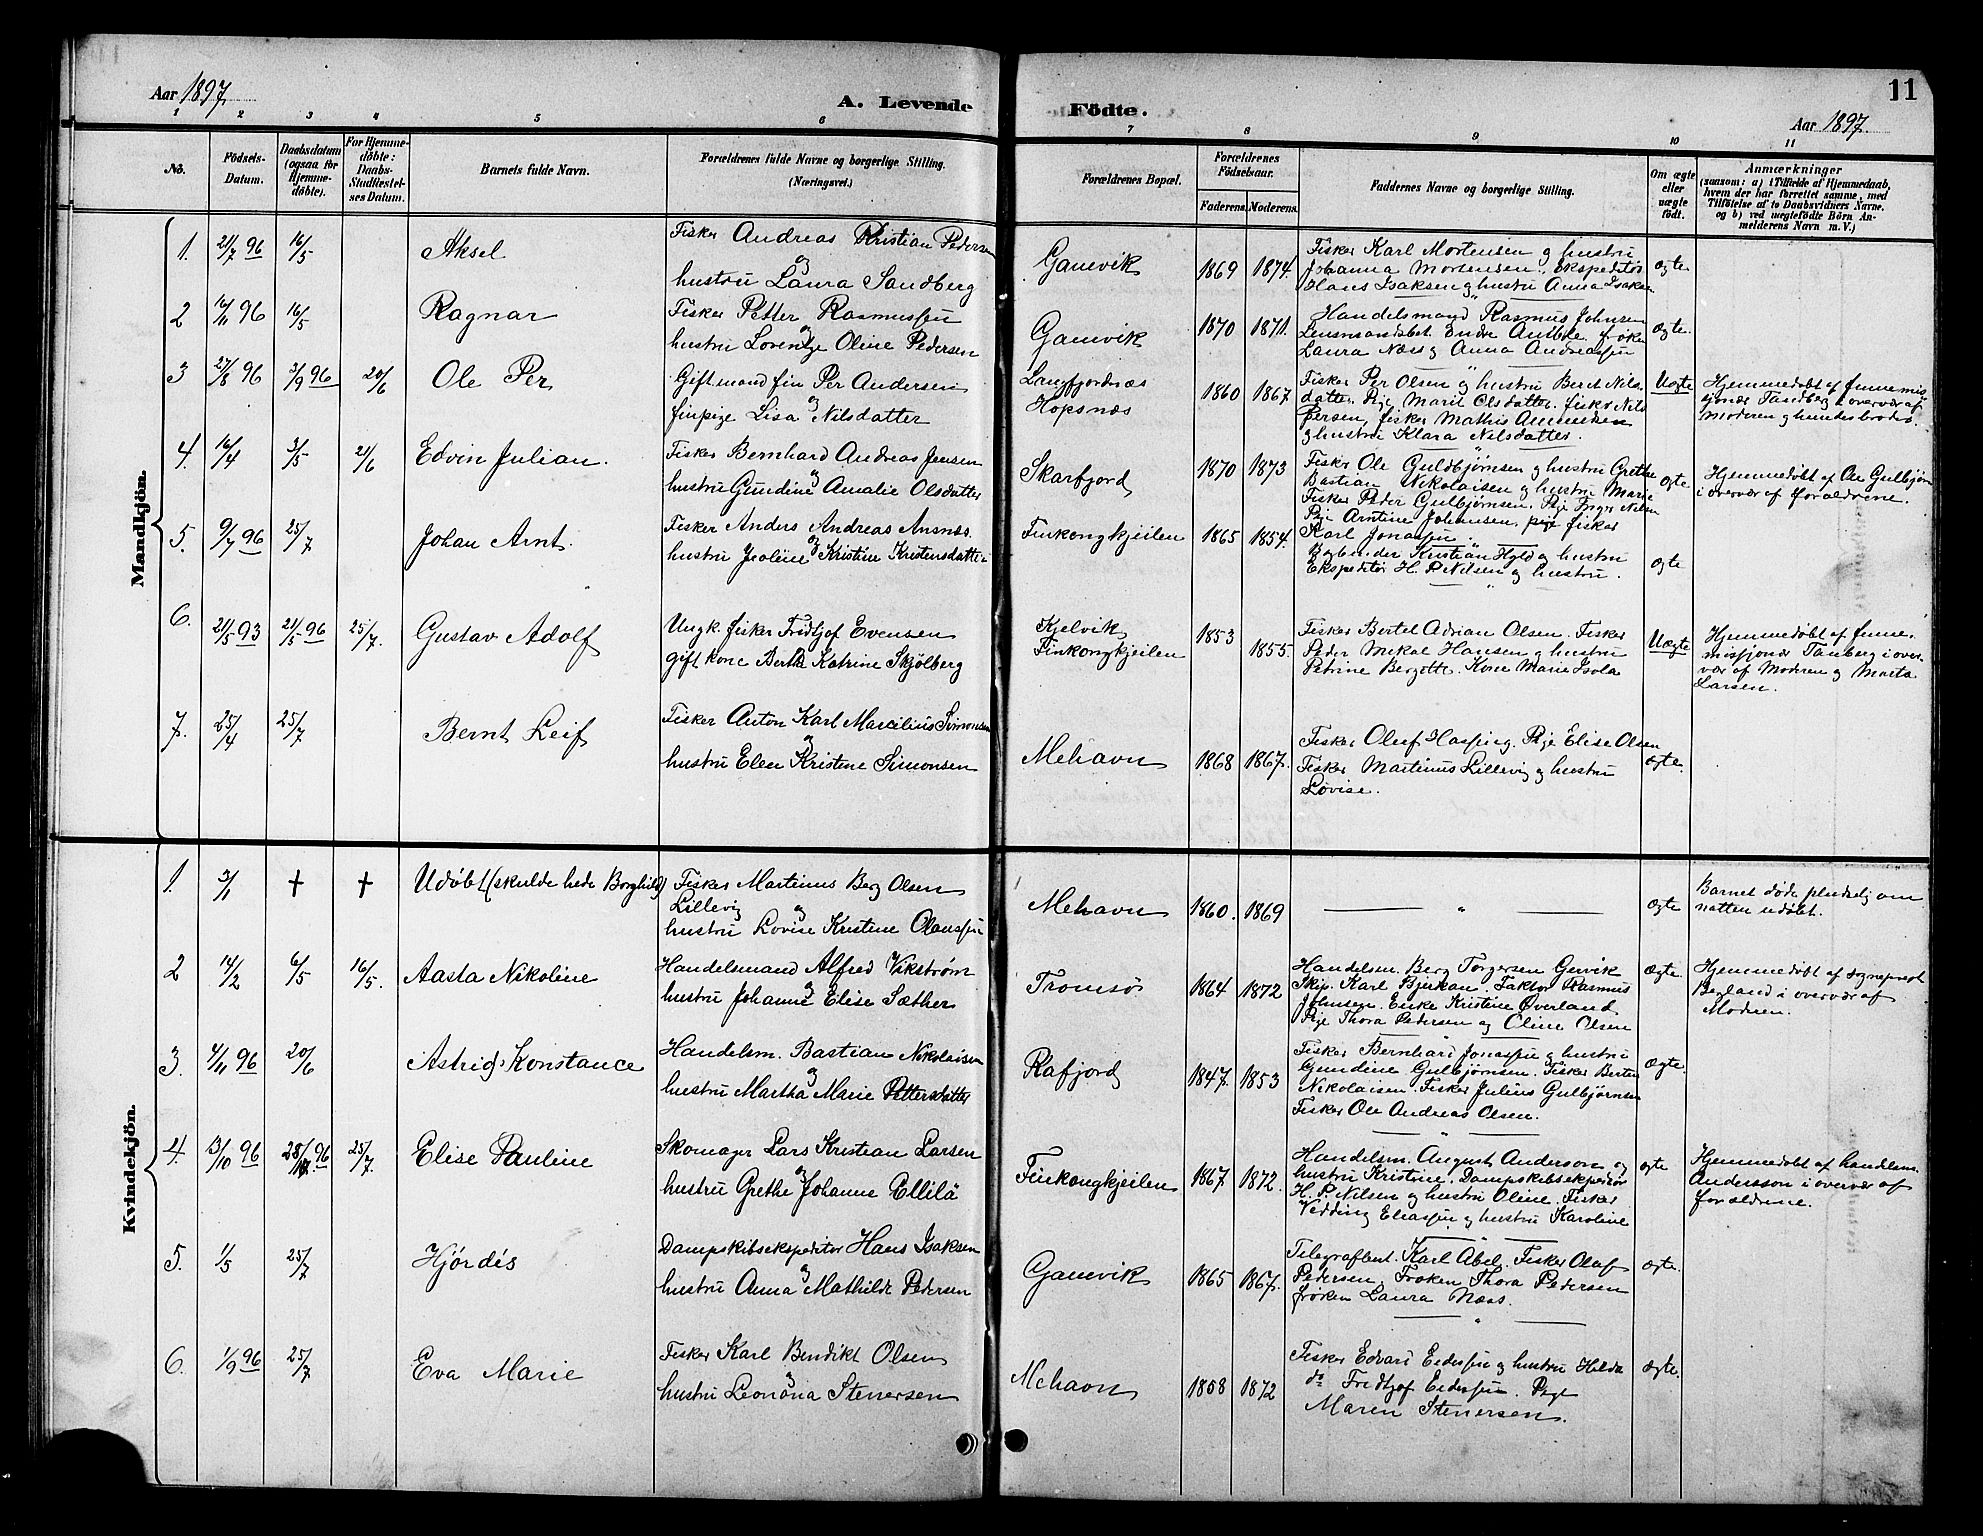 11
Aar 1897
A. Levende Födte.
Aar 1897.
1 2 3 4 5 6 7 8 9 10 11
No.
Födsels-
Datum.
Daabsdatum
(ogsaa for
Hjemme-
döbte).
For Hjemme-
döbte:
Daabs-
Stadfæstel-
ses Datum.
Barnets fulde Navn.
Forældrenes fulde Navne og borgerlige Stilling.
(Næringsvei.)
Forældrenes Bopæl.
Forældrenes
Födselsaar.
Faderens. Moderens.
Faddernes Navne og borgerlige Stilling.
Om ægte
eller
uægte
födt.
Anmærkninger
(saasom: a) i Tilfælde af Hjemmedaab,
hvem der har forrettet samme, med
Tilföielse af to Daabsvidners Navne.
og b) ved uægtefödte Börn An-
melderens Navn m. V.)
Mandkjön.
1. 21/7 96 16/5 Aksel
Fisker Andreas Kristian Pedersen
og
hustru Laura Sandberg
Gamvik 1869 1874
Fisker Karl Mortensen og hustru
Johanna Mortensen. Ekspeditör
Hans Isaksen og hustru Anna Isaksen
ægte
2 16/11 96 16/5 Ragnar
Fisker Petter Rasmussen
og
hustru Lorentze Oline Pedersen
Gamvik 1870 1871.
Handelsmand Rasmus Johnsen
Lensmandsbet. Endre frøken
Laura Næss og Anna Andreassen
Ægte.
3 27/8 96 3/9 96 20/6 Ole Per
Gift mand fin Per Andersen
og
finpige Lisa Nilsdatter
Langfjordnæs
Hopsnæs
1860 1867
Fisker Per Olsen og hustru Beret Nils-
datter. Pige Marit Olsdatter. fisker Nils
Persen, fisker Mathis
og hustru Klara Nilsdatter.
Uægte
Hjemmedøbt af finnemis-
sjonær Tandberg i overvær af
moderen og hendes broder.
4. 16/4 3/5 21/6 Edvin Julian.
Fisker Bernhard Andreas Jensen
og
hustru Gundine Amalie Olsdatter
Skarfjord 1870 1873
Fisker Ole Guldbjørnsen og hustru Grethe
Bastian Nikolaisen og hustru Marie
Fisker Peder Gulbjørnsen. Pige Inga Nilsen
Pige Arntine Johansen. pige fisker
Karl Jonassen.
ægte
Hjemmedøbt af Ole Gulbjørn
i overvær af forældrene.
5. 9/7 96 25/7 Johan Arnt.
Fisker Anders Andreas Arsnæs
og
hustru Jsoline Kristine Kristensdatter
Finkongkjeilen 1865 1854.
Kristian Hyld og hustru
Ekspeditör H. P. Nilsen og hustru.
ægte
6. 21/5 93 21/5 96 25/7. Gustav Adolf
Ungk. fisker Fridtjof Evensen
gift kone Berthe Katrine Skjølberg
Kjelvik
Finkongkjeilen
1853 1855.
Fisker Bertel Adrian Olsen. Fisker
Peder Mekal Hansen og hustru
Petrine Bergitte. Kone Marie Isola
Uægte
Hjemmedøbt af finne-
missjonær Tanberg i over-
vær af Moderen og Marta
Larsen.
7. 25/4 25/7 Bernt Leif
Fisker Anton Karl Marcilius Simonsen
og
hustru Elen Kristine Simonsen
Mehavn 1868 1867.
Fisker Oluf Hasping. Pige Elise Olsen
Fisker Martinus Lillevig og hustru
Lovise.
ægte.
Kvindekjön.
1. 3/1 + + Udøbt (skulde hede Borghild)
Fisker Martinus Berg Olsen
Lillevig og
hustru Lovise Kristine Olaussen
Mehavn 1860. 1869
— " —
ægte
Barnet døde pludselig om
natten udøbt.
2 14/2 6/5 16/5. Aasta Nikoline
Handelsmand Alfred Vikstrøm
og
hustru Johanne Elise Sæther
Tromsø 1864 1872
Handelsm. Berg Torgersen Gjervik
Skip. Karl Bjerkan. Faktor Rasmus
Johnsen. Enke Kristine Øverland
Pige Thora Pedersen og Oline Olsen
Ægte.
Hjemmedøbt af sogneprest
Bergland i overvær af
Moderen.
3. 4/11 96 20/6 Astrid Konstance
Handelsm. Bastian Nikolaisen
og
hustru Martha Marie Pettersdatter
Kafjord 1847. 1853
Fisker Bernhard Jonassen og hustru
Gundine Gulbjørnsen. Fisker Berten
Nikolaisen. Fisker Julius Gulbjørnsen
Fisker Ole Andreas Olsen.
Ægte.
4. 3/10 96 28/11 96 25/7 Elise Pauline
Skomager Lars Kristian Larsen
og
hustru Grethe Johanne Ellilä
Finkongkjeilen 1867 1872.
Handelsm. August Anderson og
hustru Kristine. Dampskibsekspeditör
H. P. Nilsen og hustru Oline. Fisker
Vedding Eliassen og hustru Karoline
ægte
Hjemmedøbt af handlsm.
Andersson i overvær af
forældrene.
5. 1/5 25/7 Hjørdis
Dampskibsekspeditör Hans Isaksen
og
hustru Anna Mathilde Pedersen
Gamvik 1865 1867.
Telegrafbest. Karl Abel. Fisker Olaf
Pedersen. Frøken Thora Pedersen
frøken Laura Næss.
ægte.
6. 1/9 96 25/7 Eva Marie
Fisker Karl Bendikt Olsen
og
hustru Leonona Stenersen
Mehavn 1858 1872
Fisker Edvard Eidissen og hustru Hilda
do Fridtjof Eidissen. Pige
Maren Stenersen.
ægte.